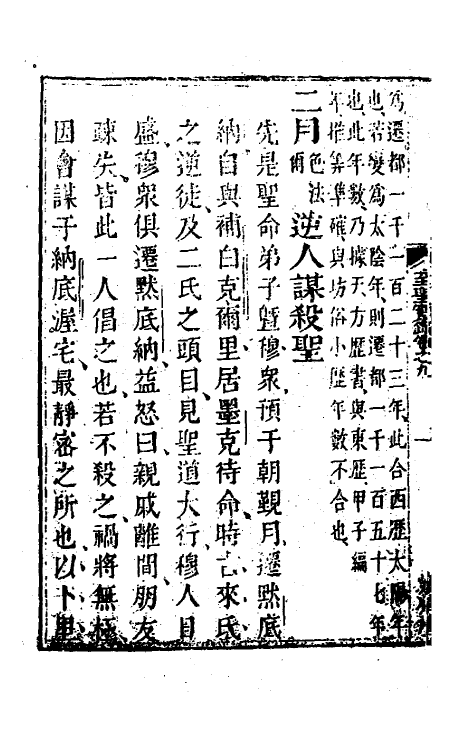 為遷都一千一百二十三年此合西歷太陽年
也若變為太陰年則遷都一千一百五十七年
也此年數乃據天方歷書與東歷甲子編
年推筭準確與坊俗小歷年數不合也
二月色法爾逆人謀殺聖
先是聖命弟子暨穆衆預于朝覲月遷默底
納自與補白克爾里居墨克待命時古來氏
之逆徒及二氏之頭目見聖道大行穆人日
盛穆衆俱遷默底納益怒曰親戚離間朋友
疎失皆此一人倡之也若不殺之禍將無極
因會謀于納底渥宅最靜密之所也以下
至聖實錄 卷之九